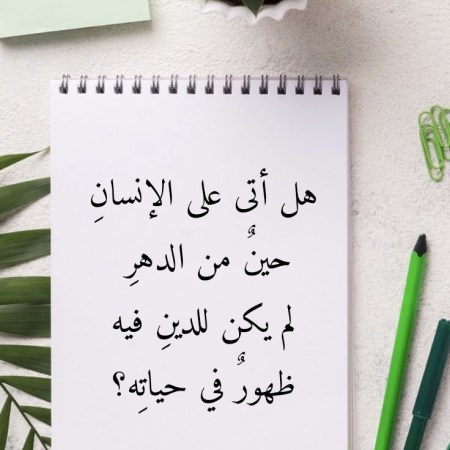 هل أتى على الإنسانِ
حينٌ من الدهرِ
لم يكن للدينِ فيه
ظهورٌ في حياتِه؟